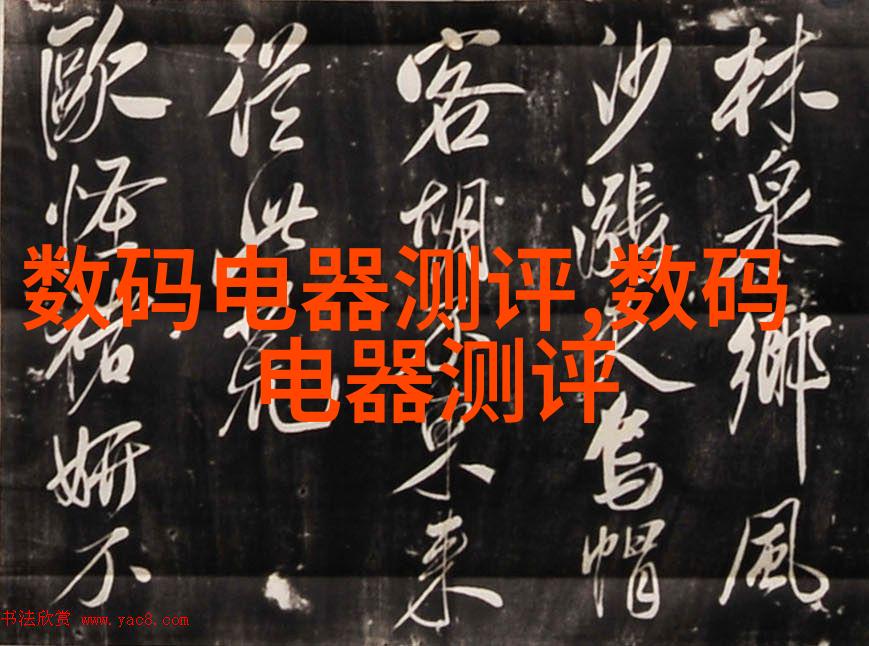 数码电器测评,数码
电器测评
林泉鄉風
沙漲烏帽
客胡来
從此
歐怪褚妍不
书法欣赏 www.yac8.com